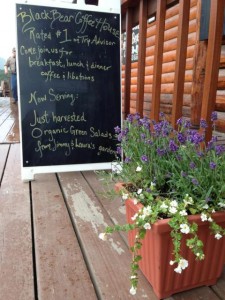 Black Bear Coffee House
Rated #1 of Trip Advisor
Come join us for
breakfast, lunch & dinner
coffee & libations
Now Serving:
Just harvested
Organic Green Salads
from Jimmy & Laura's garden